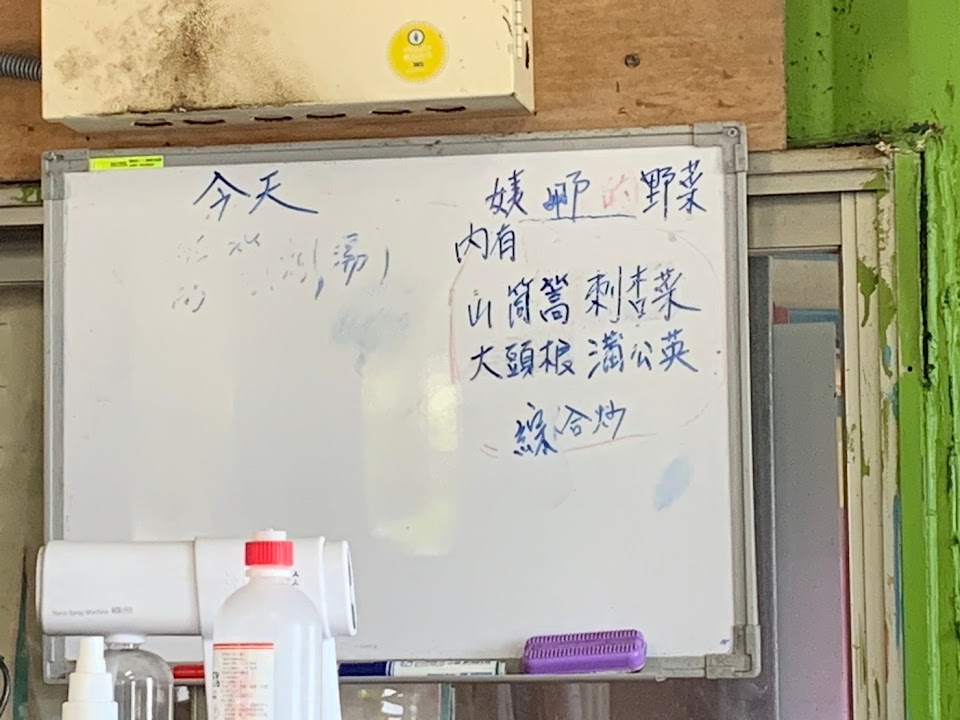 今天
湯)
姨 的 野菜
內有
山筒蒿 刺杏菜
大頭根 蒲公英
綜合炒
Nano Spray Machine